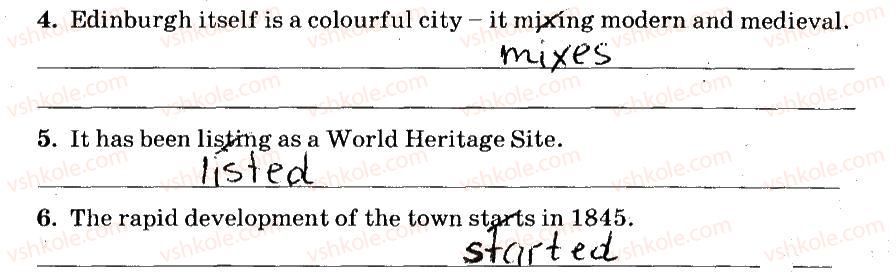 4. Edinburgh itself is a colourful city – it mixing modern and medieval.
mixes
5. It has been listing as a World Heritage Site.
listed
6. The rapid development of the town starts in 1845.
started